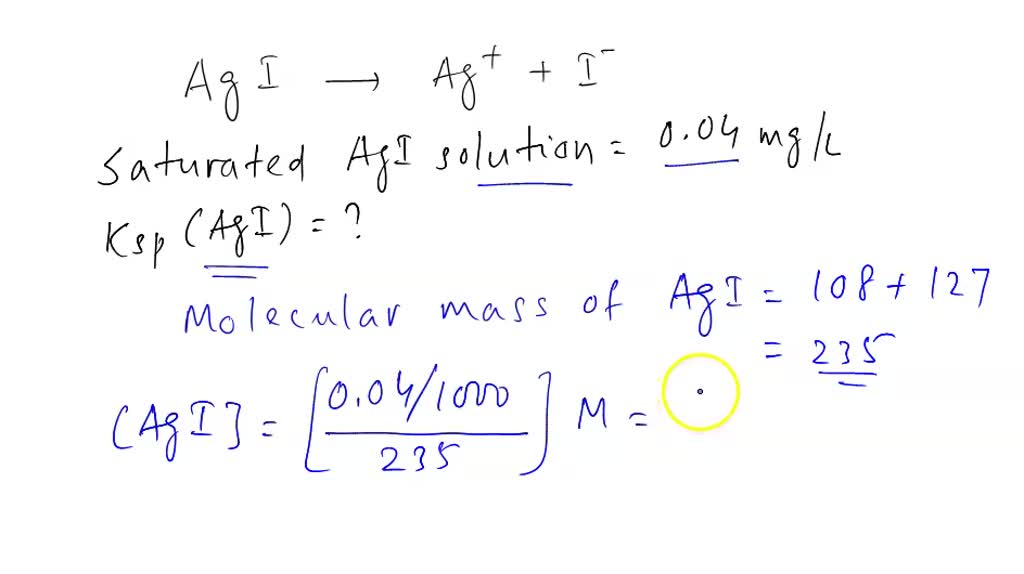 AgI → Ag⁺ + I⁻
Saturated AgI solution = 0.04 mg/L
Ksp (AgI) = ?
Molecular mass of AgI = 108 + 127
= 235
[AgI] = [0.04/1000 / 235] M =